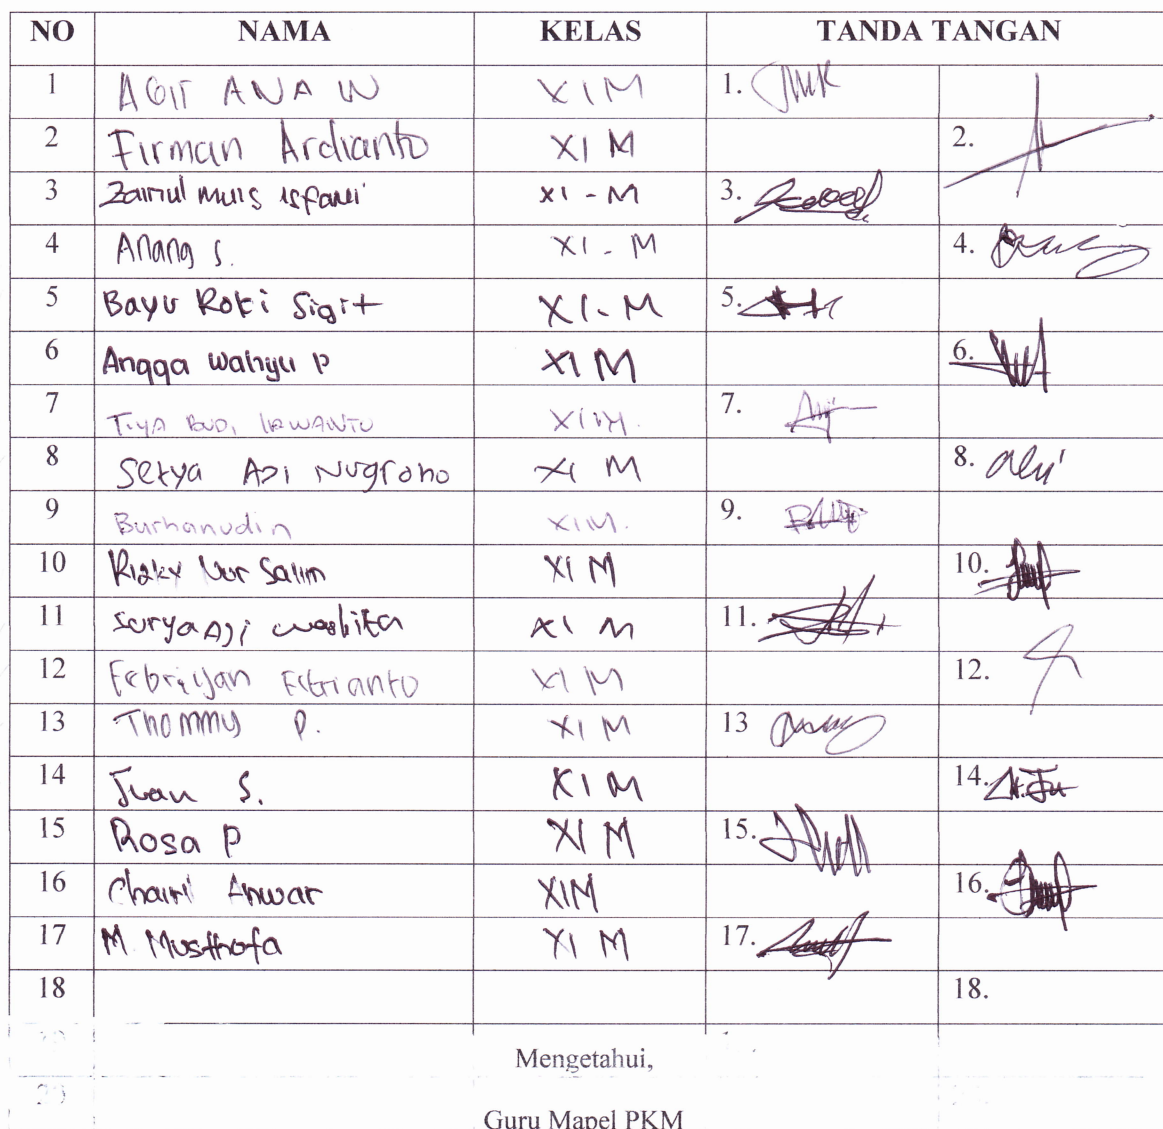 NO NAMA KELAS TANDA TANGAN
1 AGIT ANA W XI M 1.
2 Firman Ardianto XI M 2.
3 Zairul Muis Isfani XI - M 3.
4 Anang S. XI - M 4.
5 Bayu Roki Sigit XI - M 5.
6 Angga Wahyu P XI M 6.
7 BUDI IRWANTO XI M. 7.
8 Setya ADI Nugroho XI M 8.
9 Burhanudin XI M. 9.
10 Rizky Nur Salim XI M 10.
11 Surya Aji XI M 11.
12 Febriyan Fitrianto XI M 12.
13 Thommy P. XI M 13
14 Juan S. XI M 14.
15 Rosa P XI M 15.
16 Chairi Anwar XI M 16.
17 M. Musthofa XI M 17.
18 18.
Mengetahui,
20
Guru Mapel PKM